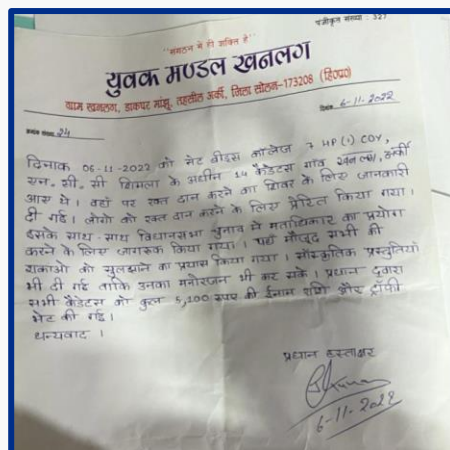 पंजीकृत संख्या : 327
"संगठन में ही शक्ति है"
युवक मण्डल खनलग
ग्राम खनलग, डाकघर मांझू, तहसील अर्की, जिला सोलन-173208 (हि०प्र०)
क्रमांक संख्या 24
दिनांक 6-11-2022
दिनाक 06-11-2022 को सेट बीड्स कॉलेज 7 HP(1) COY,
एन. सी. सी शिमला के अधीन 14 कैडेटस गांव खनलग, अर्की
आस थे। वहाँ पर रक्त दान करने का शिवर के लिए जानकारी
दी गई। लोगो को रक्त दान करने के लिए प्रेरित किया गया।
इसके साथ-साथ विधानसभा चुनाव में मताधिकार का प्रयोग
करने के लिए जागरूक किया गया। यहाँ मौजूद सभी की
शंकाओ को सुलझाने का प्रयास किया गया। सांस्कृतिक प्रस्तुतियाँ
भी दी गई ताकि उनका मनोरंजन भी कर सके। प्रधान दवारा
सभी कैडेटस को कुल 5,100 रुपए की ईनाम राशि और ट्रॉफी
भेट की गई।
धन्यवाद।
प्रधान हस्ताक्षर
6-11-2022